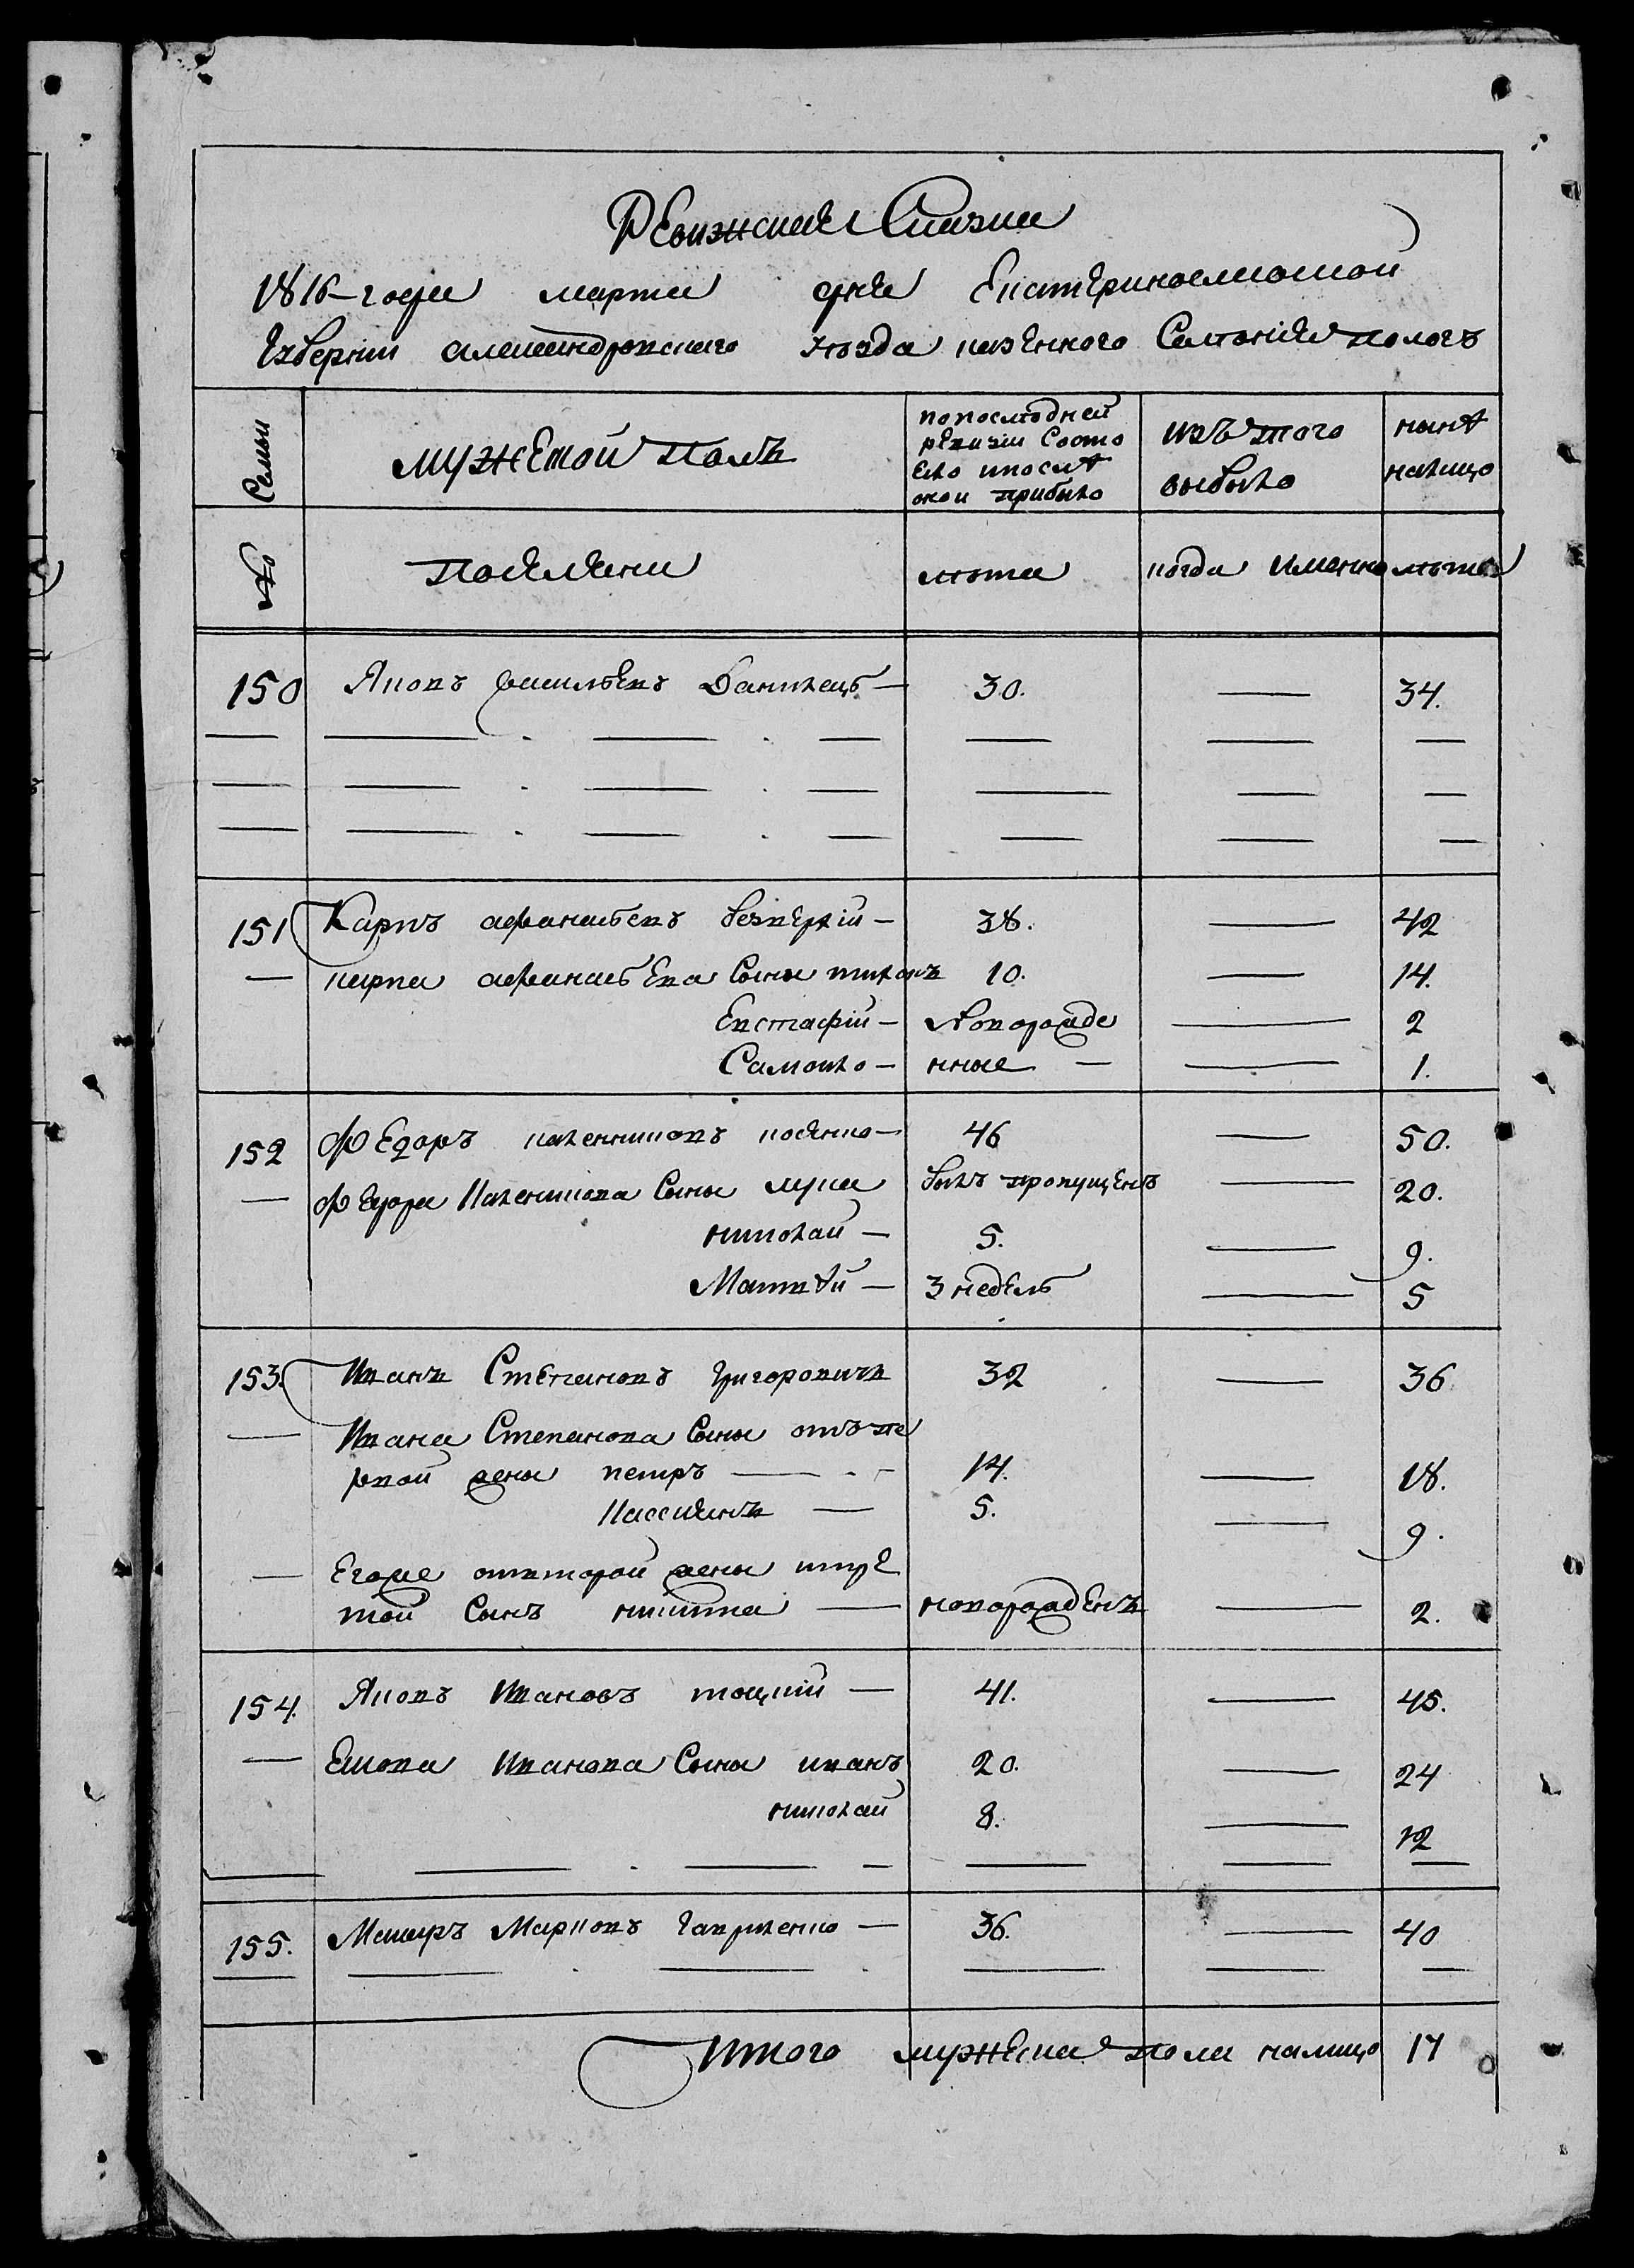 Ревижская Сказка
1816-года марта дня Екатеринославской
Губернии александровскаго уѣзда казенного Селения Пологъ
Семьи
мужеской Полъ
попоследней ревизии Состояло ипосле оной прибыло
изъ того выбыло
нынѣ налицо
№
Поселяни
лѣта
когда именно
лѣта
150 Яковъ васильевъ Данилецъ — 30. — 34.
151 Карпъ афанасьевъ безверхій — 38. — 42
— карпа афанасьева Сыны тихонъ 10. — 14.
Евстафій — Новорожде — 2
Самойло — нные — — 1.
152 Федоръ калениковъ косенко — 46 — 50.
— Федора Каленикова Сыны лука былъ пропущенъ — 20.
николай — 5. — 9.
Матвѣй — 3 недель — 5
153. Иванъ Степановъ григоровичъ 32 — 36
— Ивана Степанова Сыны отъ пе
рвой жены петръ — 14. — 18.
Кассиянъ — 5. — 9.
— Егоже отвторой жены итре
той Сынъ никита — новорожденъ — 2.
154. Яковъ Ивановъ тоцкий — 41. — 45.
— Екова Иванова Сыны иванъ 20. — 24
николай 8. — 12
155. Макаръ Марковъ гавриленко — 36. — 40
Итого мужеска пола налицо 17